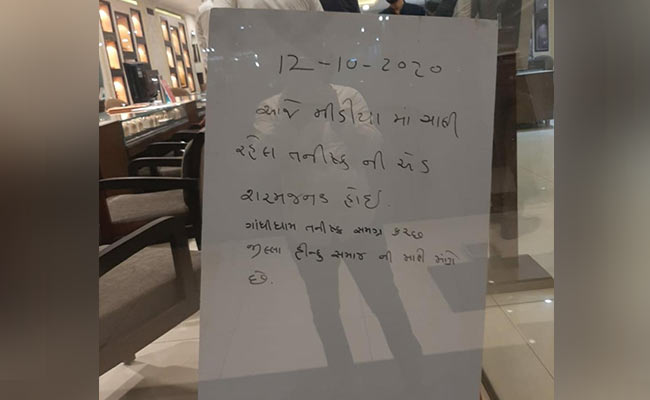 12-10-2020
આજે મીડીયા માં આવી
રહેલ તનીષ્ક ની એડ
શરમજનક હોઈ.
ગાંધીધામ તનીષ્ક સમગ્ર કચ્છ
જીલ્લા હીન્દુ સમાજ ની માફી માંગે
છે.